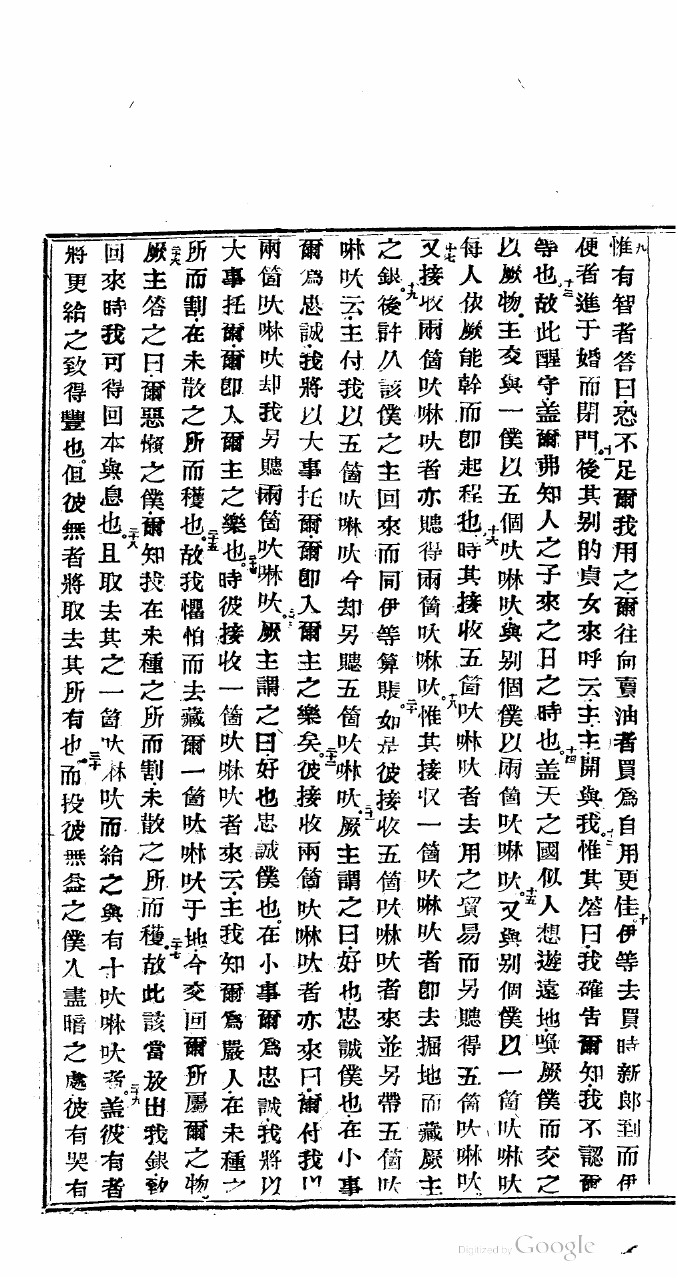 九惟有智者答曰恐不足爾我用之爾往向賣油者買為自用更佳十伊等去買時新郎到而伊
便者進于婚而閉門。十一後其别的貞女來呼云主主開與我。十二惟其答曰我確告爾知我不認爾
等也。十三故此醒守蓋爾弗知人之子來之日之時也。十四蓋天之國似人想遊遠地喚厥僕而交之
以厥物。主交與一僕以五個吠啉吠與别個僕以兩箇吠啉吠。十五又與别個僕以一箇吠啉吠
每人依厥能幹而即起程也。十六時其接收五箇吠啉吠者去用之貿易而另賺得五箇吠啉吠。
十七又接收兩箇吠啉吠者亦賺得兩箇吠啉吠。十八惟其接收一箇吠啉吠者即去掘地而藏厥主
之銀。十九後許久該僕之主回來而同伊等算賬。二十如是彼接收五箇吠啉吠者來並另帶五箇吠
啉吠云主付我以五箇吠啉吠今却另賺五箇吠啉吠。二十一厥主謂之曰好也忠誠僕也在小事
爾為忠誠我將以大事托爾爾即入爾主之樂矣。二十二彼接收兩箇吠啉吠者亦來曰爾付我以
兩箇吠啉吠却我另賺兩箇吠啉吠。二十三厥主謂之曰好也忠誠僕也。在小事爾為忠誠我將以
大事托爾爾即入爾主之樂也。二十四時彼接收一箇吠啉吠者來云主我知爾為嚴人在未種之
所而割在未散之所而穫也。二十五故我懼怕而去藏爾一箇吠啉吠于地。今交回爾所屬爾之物
二十六厥主答之曰爾惡懶之僕爾知我在未種之所而割未散之所而穫。二十七故此該當放出我銀致
回來時我可得回本與息也。二十八且取去其之一箇吠啉吠而給之與有十吠啉吠者。二十九蓋彼有者
將更給之致得豐也。但彼無者將取去其所有也。三十而投彼無益之僕入盡暗之處彼有哭有
Digitized by Google